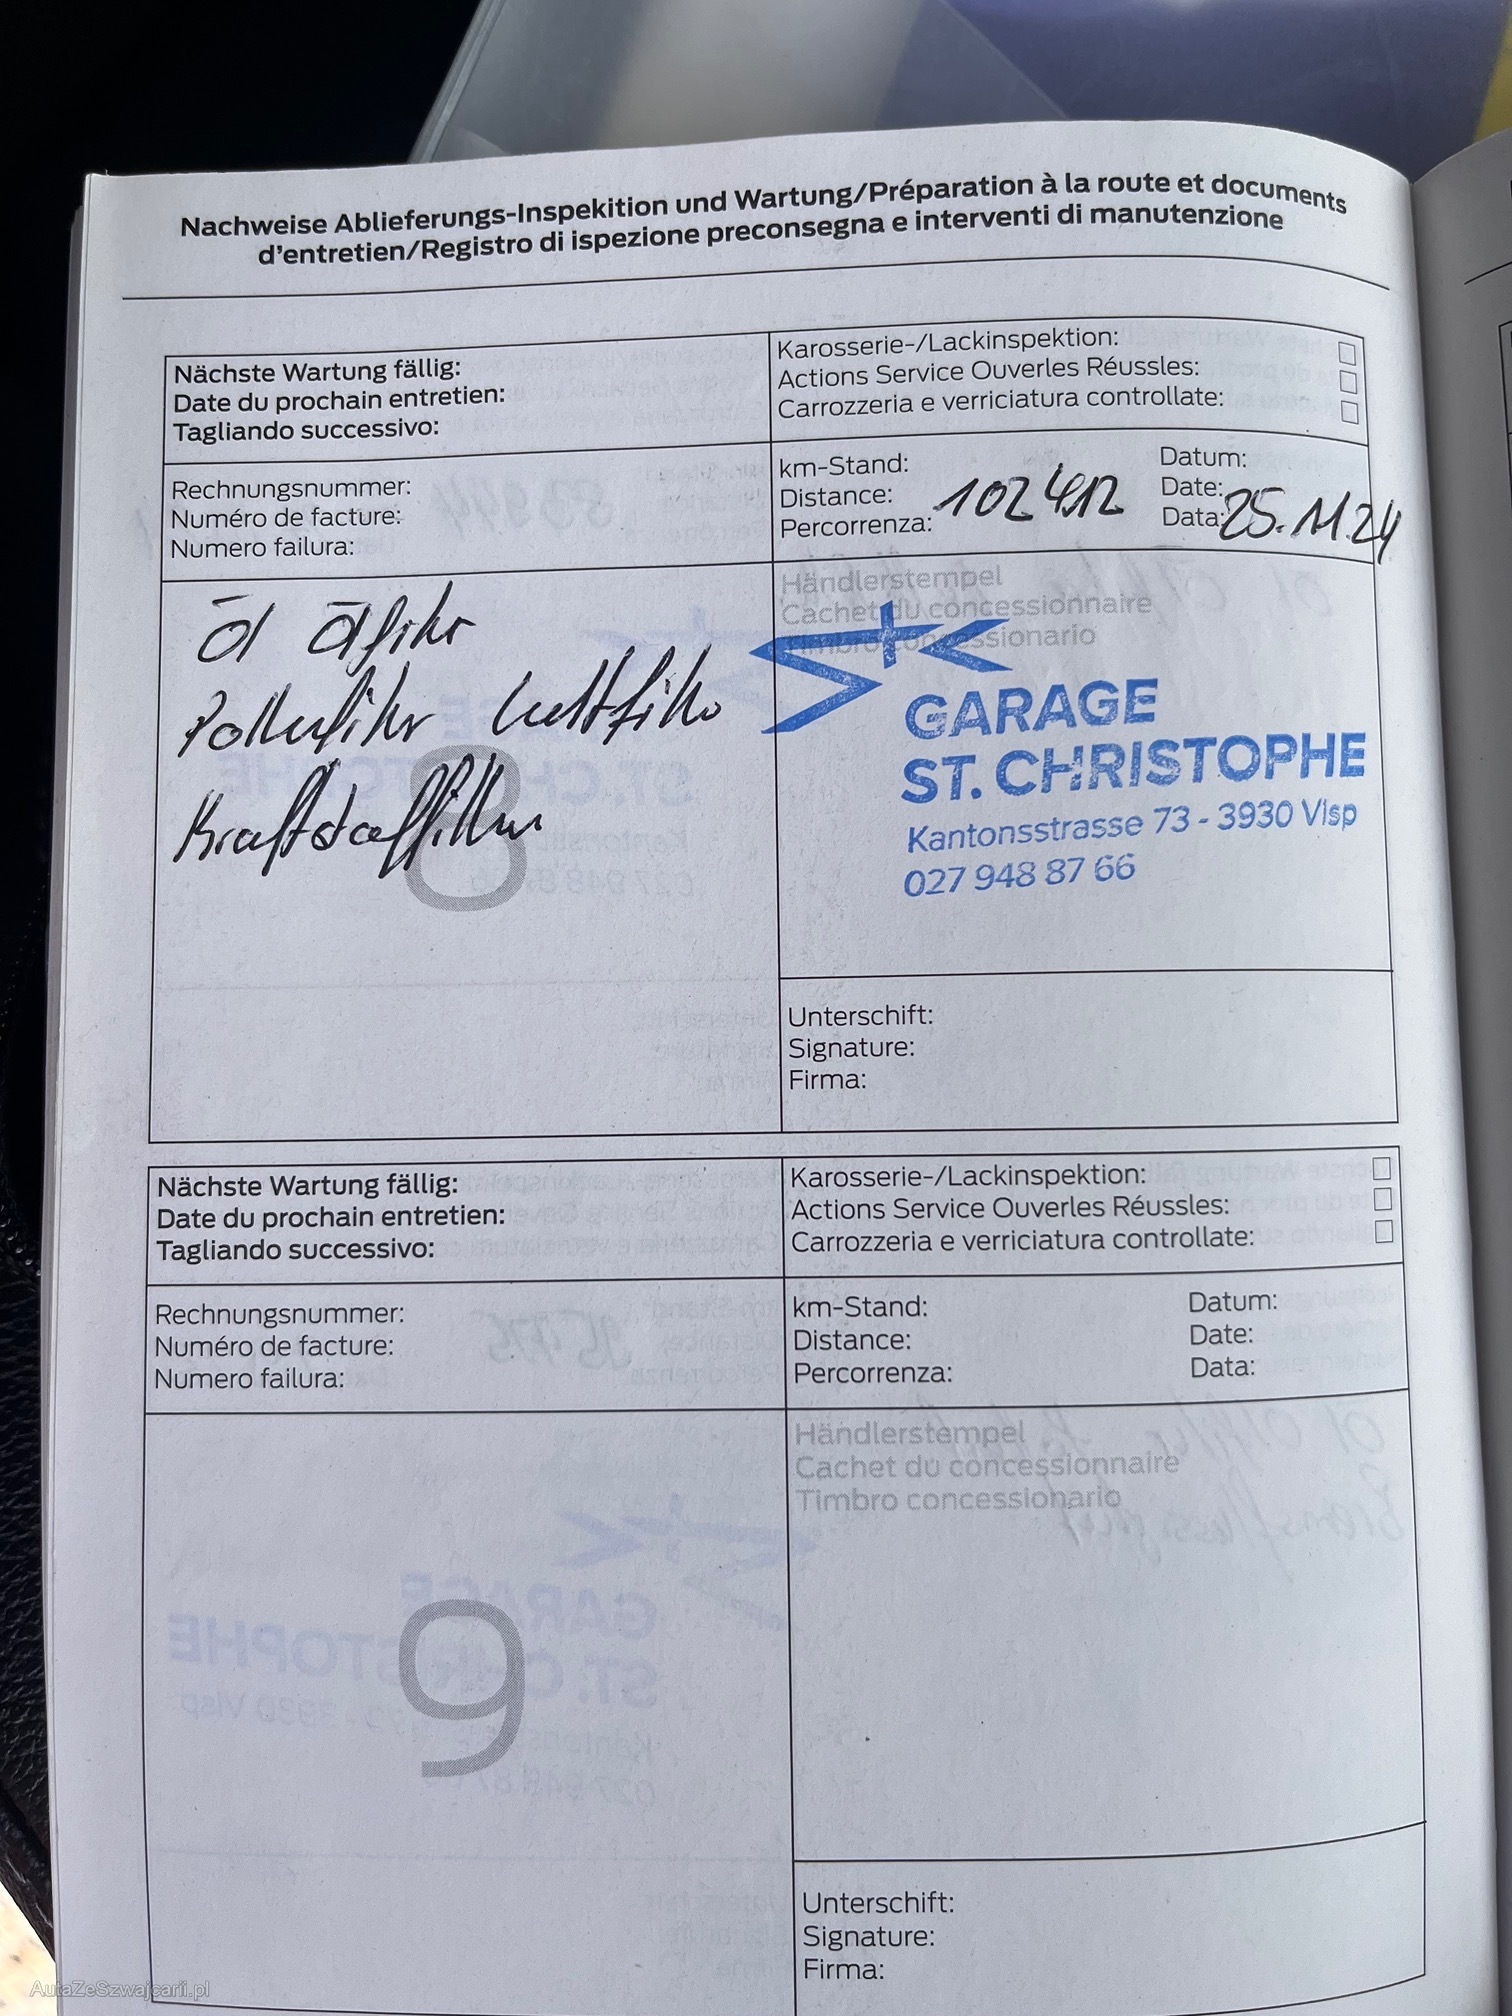 Nachweise Ablieferungs-Inspekition und Wartung/Préparation à la route et documents
d'entretien/Registro di ispezione preconsegna e interventi di manutenzione
Nächste Wartung fällig:
Date du prochain entretien:
Tagliando successivo:
Karosserie-/Lackinspektion:
Actions Service Ouverles Réussles:
Carrozzeria e verriciatura controllate:
Rechnungsnummer:
Numéro de facture:
Numero failura:
km-Stand:
Distance:
Percorrenza:
102412
Datum:
Date:
Data:
25.11.24
Öl Ölfilter
Pollenfilter Luftfilter
Kraftstofffilter
8
Händlerstempel
Cachet du concessionnaire
Timbro concessionario
GARAGE
ST. CHRISTOPHE
Kantonsstrasse 73 - 3930 Visp
027 948 87 66
Unterschift:
Signature:
Firma:
Nächste Wartung fällig:
Date du prochain entretien:
Tagliando successivo:
Karosserie-/Lackinspektion:
Actions Service Ouverles Réussles:
Carrozzeria e verriciatura controllate:
Rechnungsnummer:
Numéro de facture:
Numero failura:
km-Stand:
Distance:
Percorrenza:
Datum:
Date:
Data:
9
Händlerstempel
Cachet du concessionnaire
Timbro concessionario
Unterschift:
Signature:
Firma:
AutaZeSzwajcarii.pl